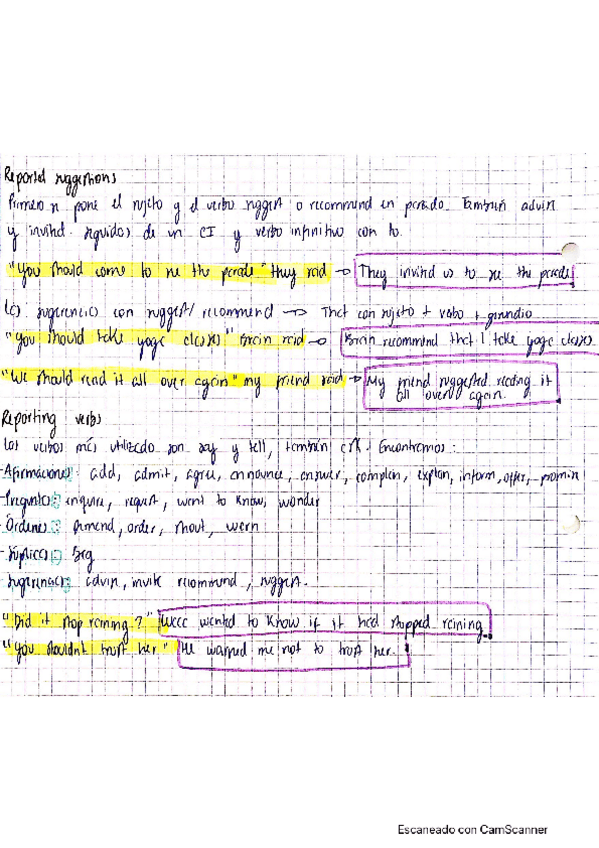 Reported suggestions
Primero se pone el sujeto y el verbo suggest o recommend en pasado. También advise
y invited. seguidos de un CI y verbo infinitivo con to.
"You should come to see the parade" they said → They invited us to see the parade
Las sugerencias con suggest/recommend → That con sujeto + verbo + gerundio
"you should take yoga classes!" Brain said → Brain recommend that I take yoga classes
"We should read it all over again" my friend said → My friend suggested reading it
all over again.
Reporting verbs
Los verbos más utilizado son say y tell, también ask. Encontramos:
-Afirmaciones: add, admit, agree, announce, answer, complain, explain, inform, offer, promise
-Preguntas: enquire, request, want to know, wonder
-Órdenes: demand, order, shout, warn
-Súplicas: Beg
-sugerencias: advise, invite recommend, suggest.
"Did it stop raining?" wanted to know if it had stopped raining.
"you shouldn't trust her" He warned me not to trust her.
Escaneado con CamScanner